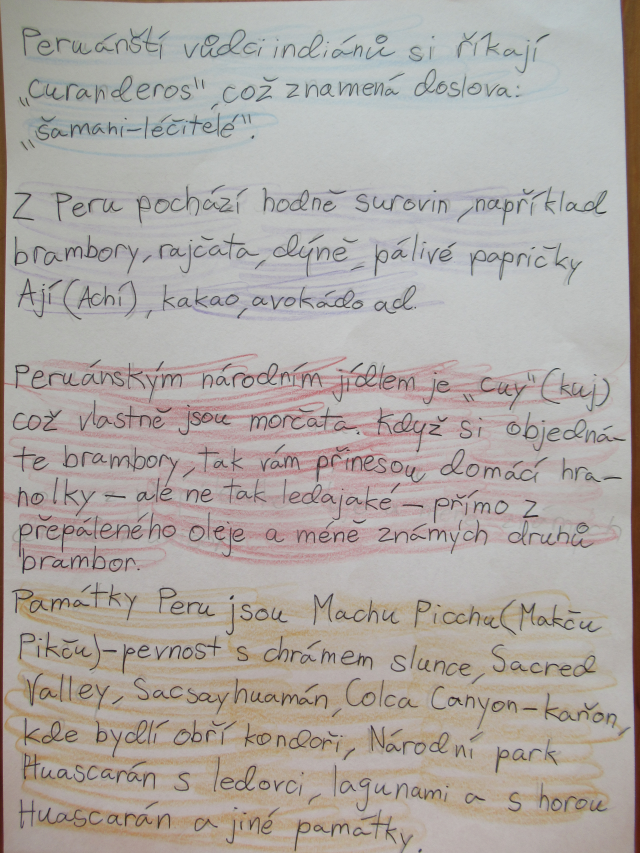 Peruánští vůdci indiánů si říkají
„curanderos", což znamená doslova:
„šamani-léčitelé".
Z Peru pochází hodně surovin, například
brambory, rajčata, dýně, pálivé papričky
Ají (Achí), kakao, avokádo ad.
Peruánským národním jídlem je „cuy" (kuj)
což vlastně jsou morčata. Když si objedná-
te brambory, tak vám přinesou domácí hra-
nolky – ale ne tak ledajaké – přímo z
přepáleného oleje a méně známých druhů
brambor.
Památky Peru jsou Machu Picchu (Makču
Pikču) – pevnost s chrámem slunce, Sacred
Valley, Sacsayhuamán, Colca Canyon – kaňon,
kde bydlí obří kondoři, Národní park
Huascarán s ledovci, lagunami a s horou
Huascarán a jiné památky.